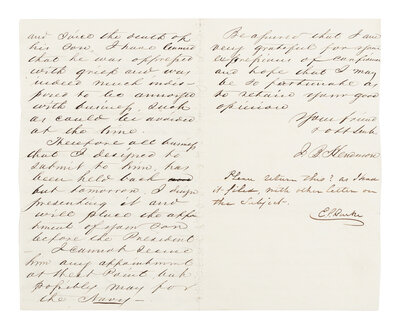 and since the death of
his son, I have learned
that he was oppressed
with grief and was
indeed much indis-
posed to be annoyed
with business, such
as could be avoided
at the time.
Therefore all business
that I designed to
submit to him, has
been held back
but tomorrow I design
presenting it and
will place the appoint
ment of your son
before the President
I cannot secure
him any appointment
at West Point but
possibly may for
the Navy —
Be assured that I am
very grateful for your
expressions of confidence
and hope that I may
be so fortunate as
to retain your good
opinion
Your friend
&
Please return this? as I want
it filed, with other letter on
the subject.